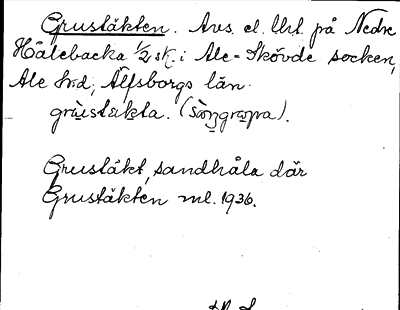 Grustäkten. Avs. el. Urt. på Nedre
Hålebacka 1/2, sk. i Ale-Skövde socken,
Ale hrd, Älfsborgs län.
Grustäkt, sandhåla där
Grustäkten ml. 1936.